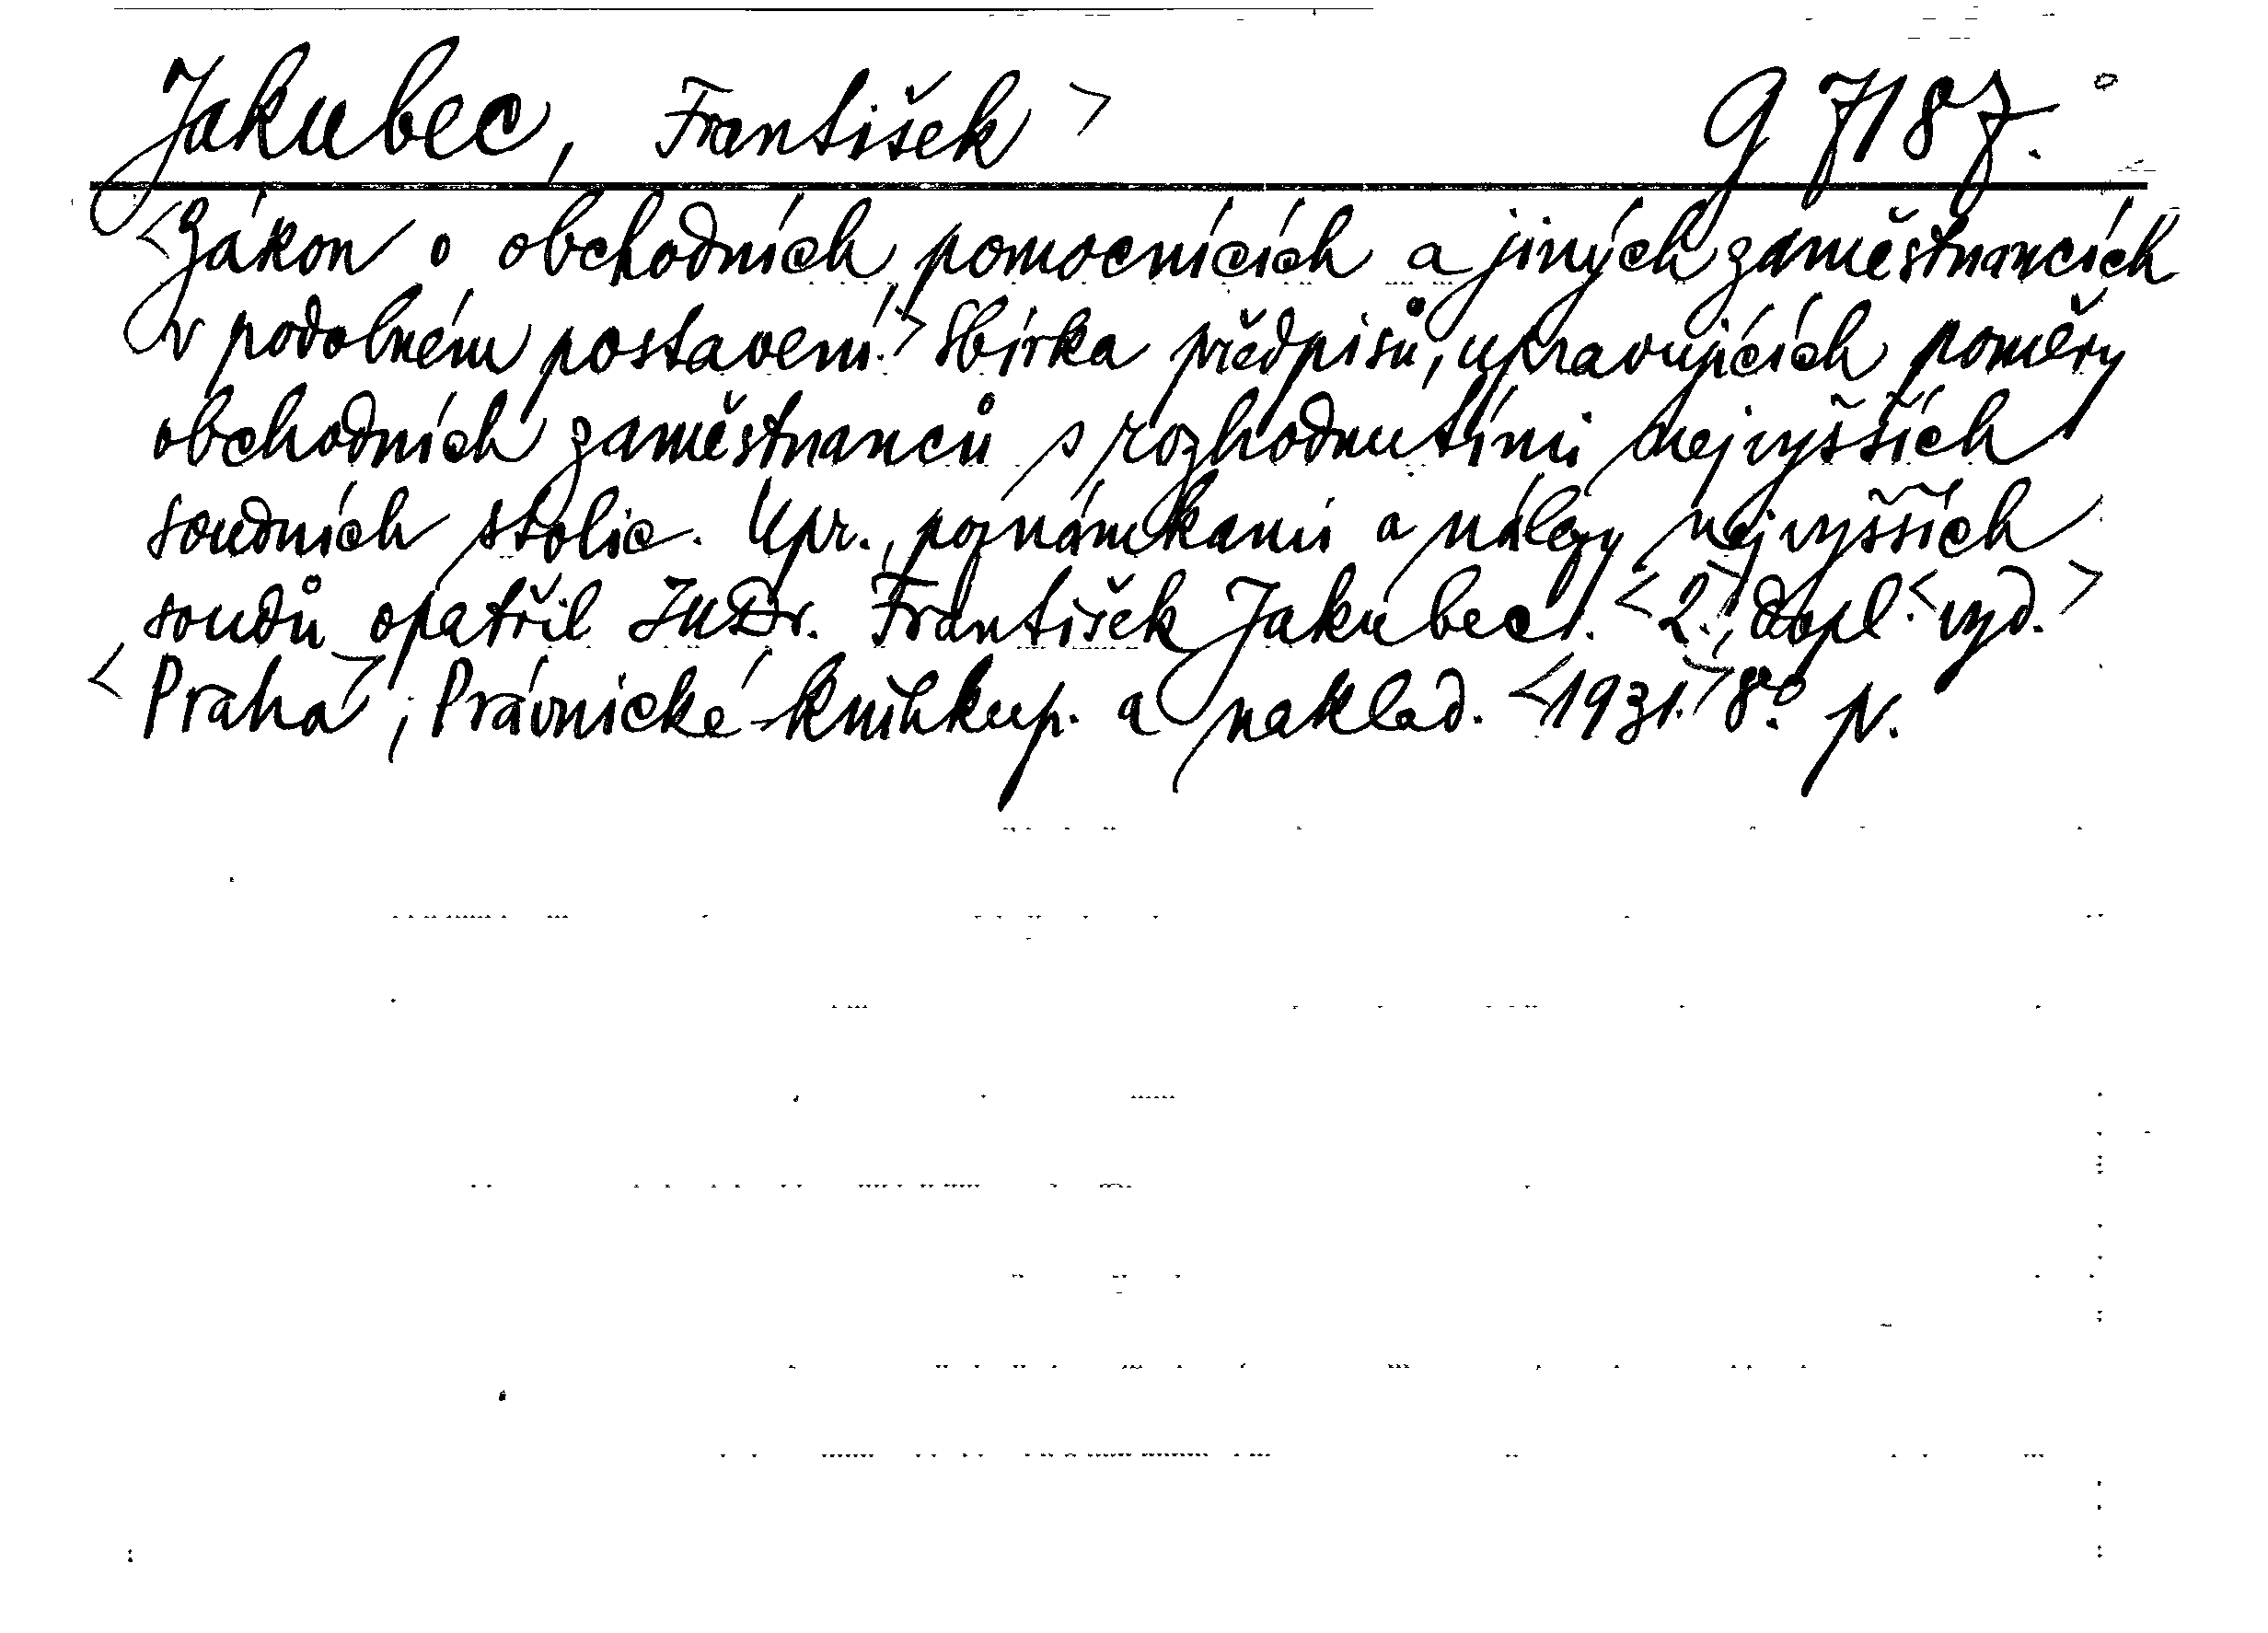 Jakubec, František > G 7187.
<Zákon o obchodních pomocnících a jiných zaměstnancích
v podobném postavení.> Sbírka předpisů, upravujících poměry
obchodních zaměstnanců s rozhodnutími nejvyšších
soudních stolic. Upr., poznámkami a nálezy nejvyšších
soudů opatřil JUDr. František Jakubec. <2.>, dopl. <vyd.>
<Praha>, Právnické knihkup. a naklad. <1931.> 8°. p.